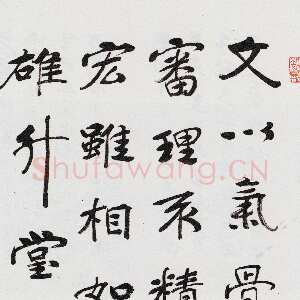 文以氣骨
審理不精
宏雖相如
雄升堂
Shufawang.CN